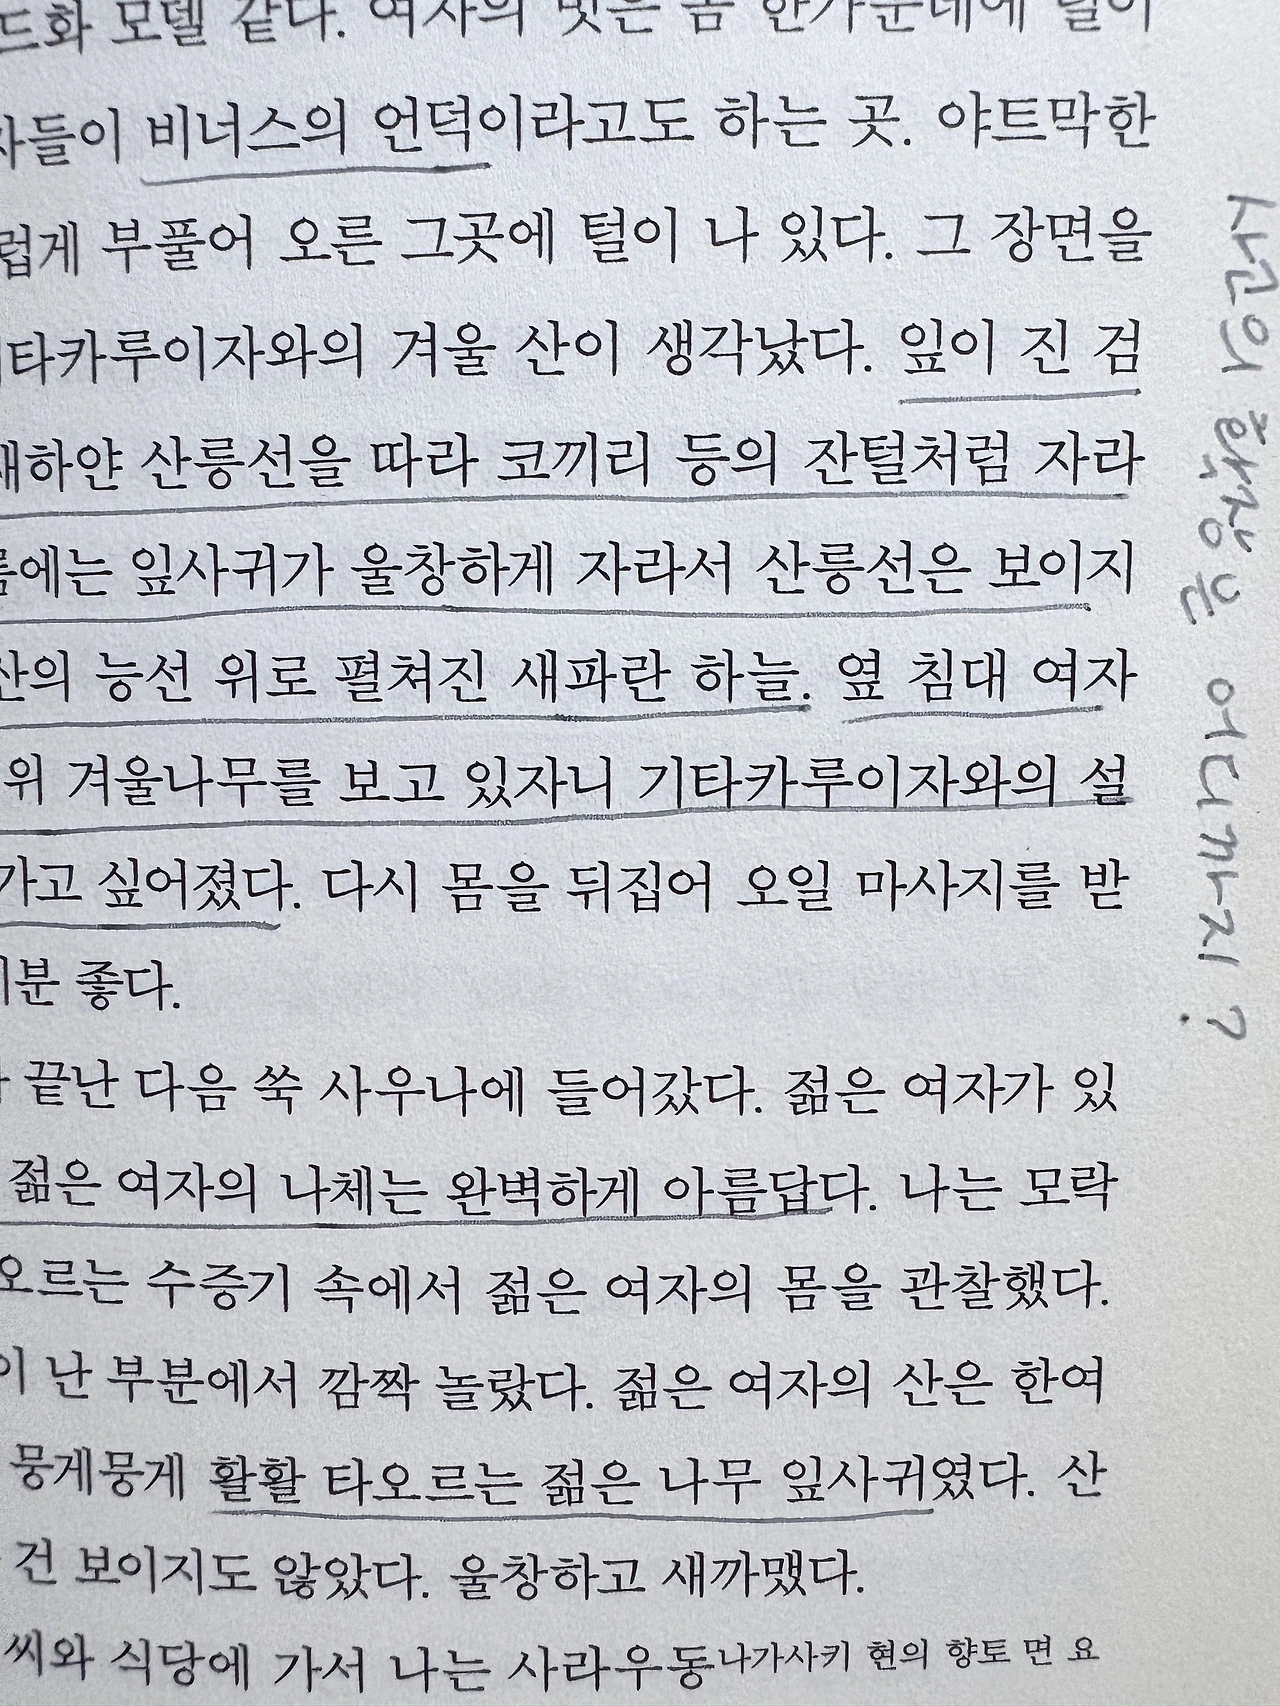 드화 모델 같다. 여자의 벗은 몸 한가운데에 털이
자들이 비너스의 언덕이라고도 하는 곳. 야트막한
럽게 부풀어 오른 그곳에 털이 나 있다. 그 장면을
기타카루이자와의 겨울 산이 생각났다. 잎이 진 검
새하얀 산릉선을 따라 코끼리 등의 잔털처럼 자라
름에는 잎사귀가 울창하게 자라서 산릉선은 보이지
산의 능선 위로 펼쳐진 새파란 하늘. 옆 침대 여자
위 겨울나무를 보고 있자니 기타카루이자와의 설
가고 싶어졌다. 다시 몸을 뒤집어 오일 마사지를 받
기분 좋다.
끝난 다음 쑥 사우나에 들어갔다. 젊은 여자가 있
젊은 여자의 나체는 완벽하게 아름답다. 나는 모락
오르는 수증기 속에서 젊은 여자의 몸을 관찰했다.
이 난 부분에서 깜짝 놀랐다. 젊은 여자의 산은 한여
뭉게뭉게 활활 타오르는 젊은 나무 잎사귀였다. 산
건 보이지도 않았다. 울창하고 새까맸다.
씨와 식당에 가서 나는 사라우동나가사키 현의 향토 면 요
사고의 확장은 어디까지?